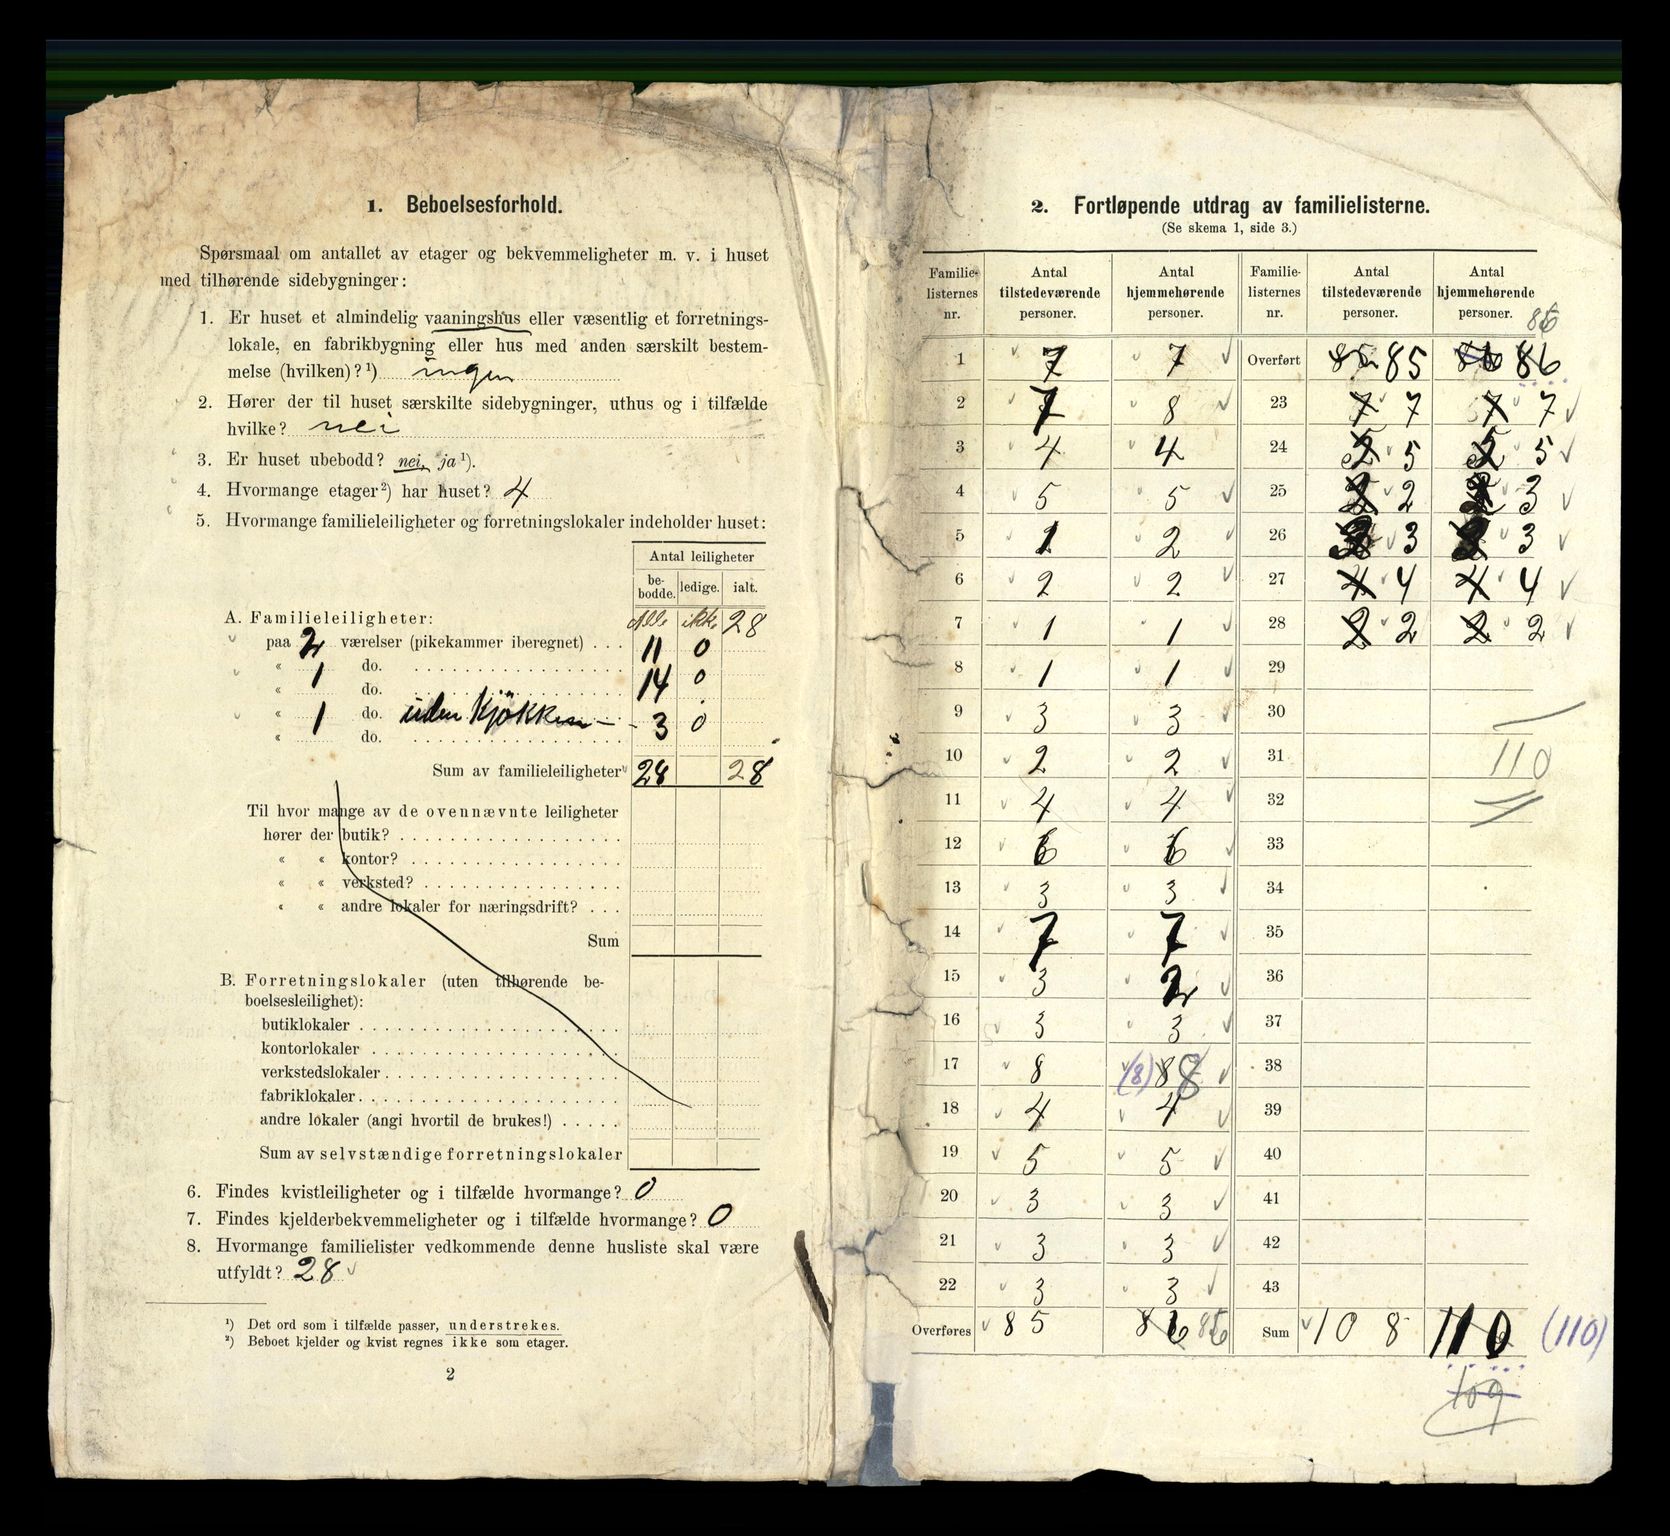 1. Beboelsesforhold.
Spørsmaal om antallet av etager og bekvemmeligheter m. v. i huset
med tilhørende sidebygninger:
1. Er huset et almindelig vaaningshus eller væsentlig et forretnings-
lokale, en fabrikbygning eller hus med anden særskilt bestem-
melse (hvilken)?¹) ingen
2. Hører der til huset særskilte sidebygninger, uthus og i tilfælde
hvilke? nei
3. Er huset ubebodd? nei, ja¹).
4. Hvormange etager²) har huset? 4
5. Hvormange familieleiligheter og forretningslokaler indeholder huset:
Antal leiligheter
be-bodde. ledige. ialt.
A. Familieleiligheter: Alle ikke 28
paa 2 værelser (pikekammer iberegnet) . . . 11 0
« 1 do. 14 0
« do.
« 1 do. uden Kjøkken - 3 0
« do.
Sum av familieleiligheter 28 28
Til hvor mange av de ovennævnte leiligheter
hører der butik?
« « kontor?
« « verksted?
« « andre lokaler for næringsdrift?
Sum
B. Forretningslokaler (uten tilhørende be-
boelsesleilighet):
butiklokaler
kontorlokaler
verkstedslokaler
fabriklokaler
andre lokaler (angi hvortil de brukes!)
Sum av selvstændige forretningslokaler
6. Findes kvistleiligheter og i tilfælde hvormange? 0
7. Findes kjelderbekvemmeligheter og i tilfælde hvormange? 0
8. Hvormange familielister vedkommende denne husliste skal være
utfyldt? 28
¹) Det ord som i tilfælde passer, understrekes.
²) Beboet kjelder og kvist regnes ikke som etager.
2
2. Fortløpende utdrag av familielisterne.
(Se skema 1, side 3.)
Familie- Antal Antal Familie- Antal Antal
listernes tilstedeværende hjemmehørende listernes tilstedeværende hjemmehørende
nr. personer. personer. nr. personer. personer.
86
1 7 7 Overført 85 85 86 86
2 7 8 23 7 7 7 7
3 4 4 24 5 5 5 5
4 5 5 25 2 2 3
5 1 2 26 3 3
6 2 2 27 4 4 4 4
7 1 1 28 2 2 2 2
8 1 1 29
9 3 3 30
10 2 2 31 110
11 4 4 32
12 6 6 33
13 3 3 34
14 7 7 35
15 3 2 36
16 3 3 37
17 8 (8) 8 8 38
18 4 4 39
19 5 5 40
20 3 3 41
21 3 3 42
22 3 3 43
Overføres 85 86 86 Sum 108 110 (110)
109